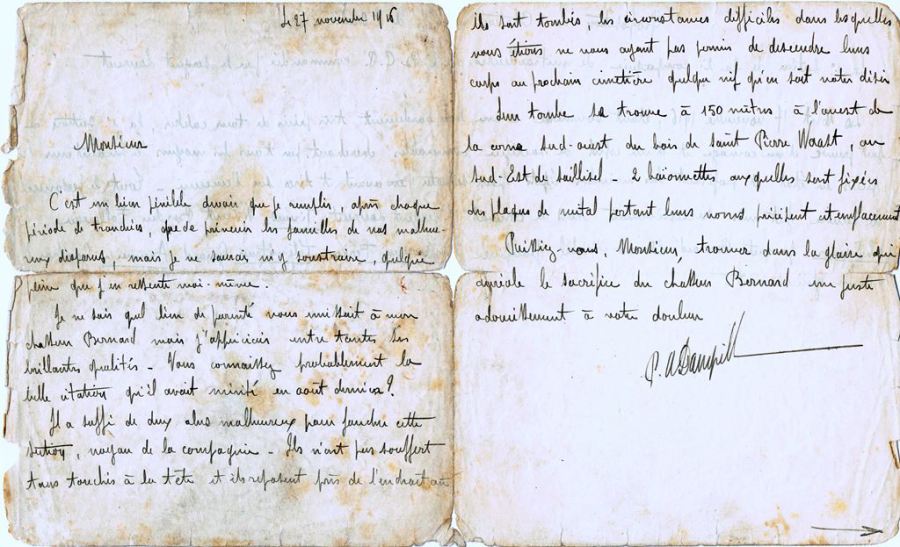 Le 27 novembre 1916
Monsieur
C'est un bien pénible devoir que je remplis, après chaque
période de tranchées, que de prévenir les familles de nos malheu-
reux disparus, mais je ne saurais m'y soustraire, quelque
peine que j'en ressente moi-même.
Je ne sais quel lien de parenté vous unissait à mon
chasseur Bernard mais j'appréciais entre toutes ses
brillantes qualités - Vous connaissez probablement la
belle citation qu'il avait mérité en août dernier?
Il a suffi de deux obus malheureux pour faucher cette
section, noyau de la compagnie - Ils n'ont pas souffert
tous touchés à la tête et ils reposent près de l'endroit où
ils sont tombés, les circonstances difficiles dans lesquelles
nous étions ne nous ayant pas permis de descendre leurs
corps au prochain cimetière quelque vif qu'en soit notre désir
Leur tombe se trouve à 150 mètres à l'ouest de
la corne sud-ouest du bois de Saint Pierre Waast, au
sud-Est de Saillisel - 2 baïonnettes auxquelles sont fixées
des plaques de métal portant leurs noms précisent cet emplacement
Puissiez-vous, Monsieur, trouver dans la gloire qui
auréole le sacrifice du chasseur Bernard un juste
adoucissement à votre douleur